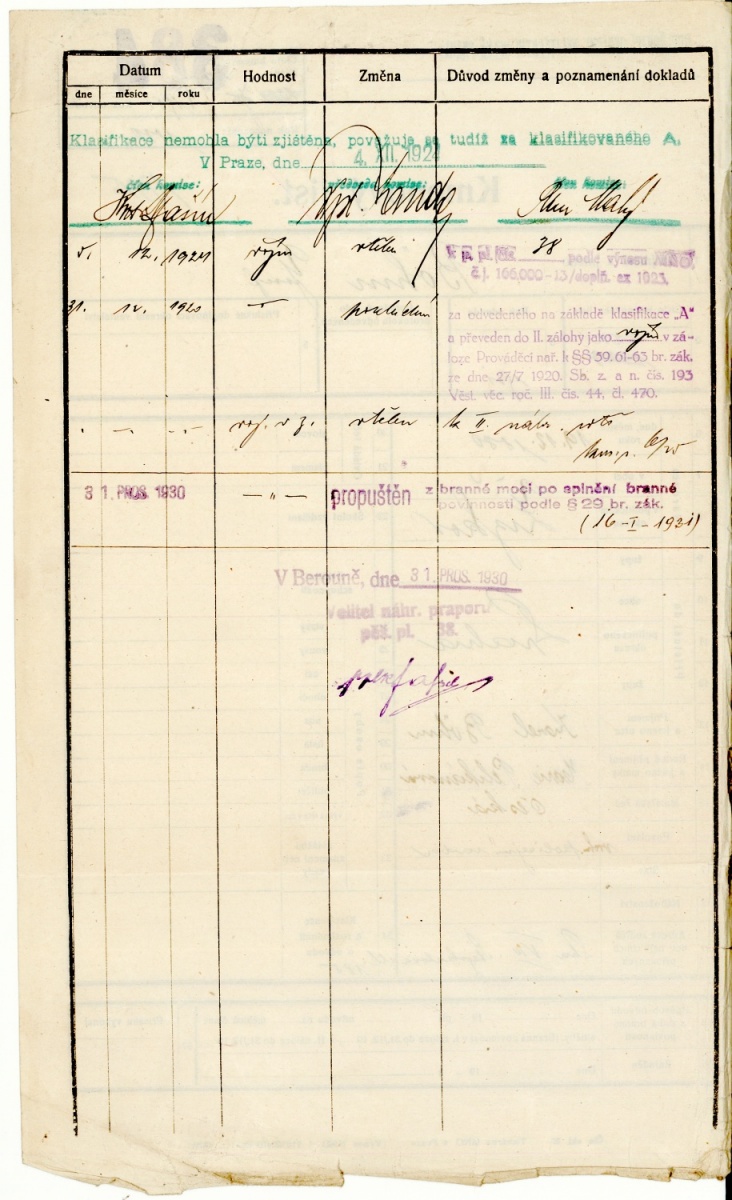 Datum Hodnost Změna Důvod změny a poznamenání dokladů
dne měsíce roku
Klasifikace nemohla býti zjištěna, považuje se tudíž za klasifikovaného A.
V Praze, dne 4. XII. 1924
člen komise: předseda komise: člen komise:
5. 12. 1924 vojín vtělen k p. pl. čís. 38 podle výnosu MNO.
č.j. 166.000-13/doplň. ex 1923.
31. 12. 1920 za odvedeného na základě klasifikace „A"
a převeden do II. zálohy jako voj. v zá-
loze Prováděcí nař. k §§ 59.61-63 br. zák.
ze dne 27/7 1920. Sb. z. a n. čís. 193
Věst. věc. roč. III. čís. 44, čl. 470.
voj. v z. vtělen k II. náhr.
31. PROS. 1930 — „ — propuštěn z branné moci po splnění branné
povinnosti podle § 29 br. zák.
(16-I-1931)
V Berouně, dne 31. PROS. 1930
Velitel náhr. praporu
pěš. pl. 38.